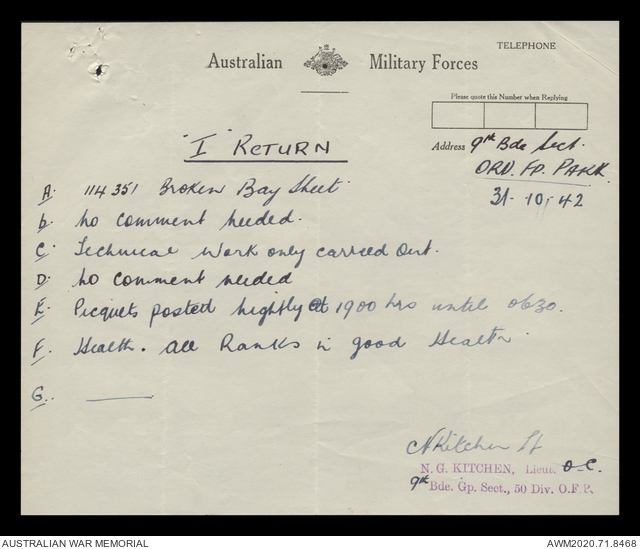 TELEPHONE
Australian Military Forces
Please quote this Number when Replying
Address 9th Bde Sect.
ORD. FD. PARK.
31-10-42
"I" RETURN
A. 114351 Broken Bay Sheet.
b. no comment needed.
C. Technical work only carried out.
D. no comment needed
E. Picquets posted nightly at 1900 hrs until 0630.
F. Health. all Ranks in good Health.
G. ———
N Kitchen Lt
N. G. KITCHEN, Lieut. O-C.
9th Bde. Gp. Sect., 50 Div. O.F.P.
AUSTRALIAN WAR MEMORIAL
AWM2020.71.8468